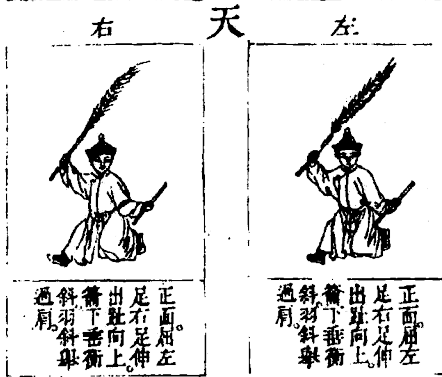 天
左
正面。屈左
足右足伸
出趾向上。
籥下垂衡
斜。羽斜舉
過肩。
右
正面。屈左
足右足伸
出趾向上。
籥下垂衡
斜羽斜舉
過肩。